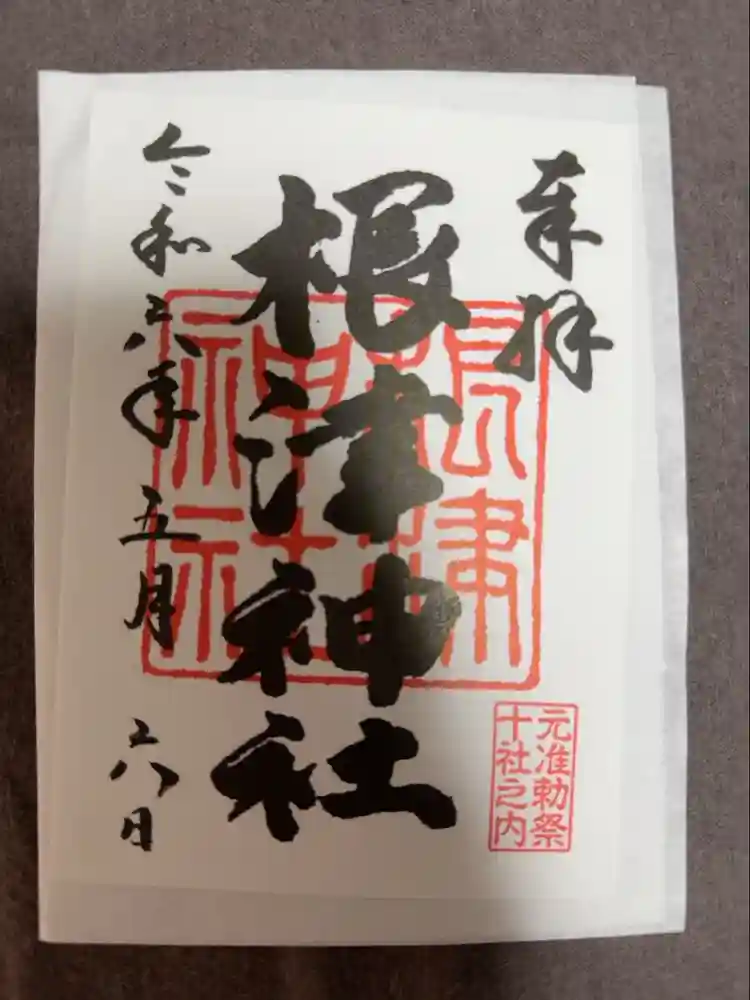 奉拝
根津神社
令和六年 五月 六日
根津
神社
元准勅祭
十社之内